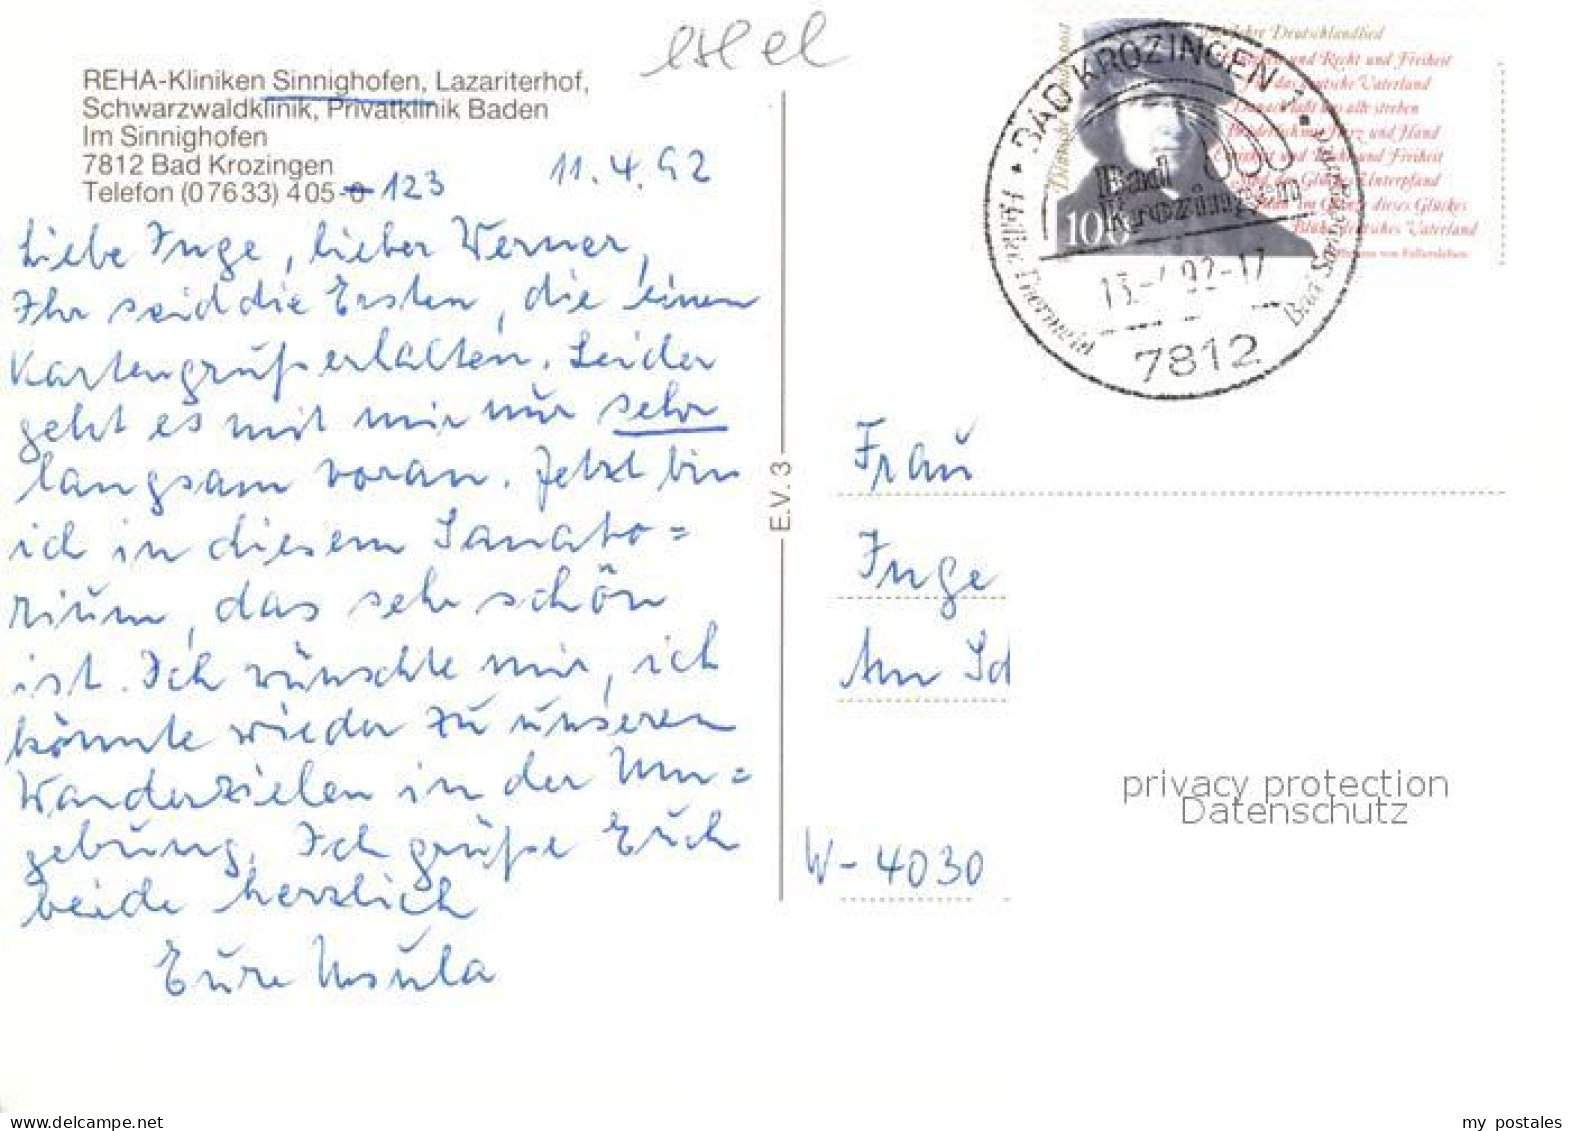 REHA-Kliniken Sinnighofen, Lazariterhof,
Schwarzwaldklinik, Privatklinik Baden
Im Sinnighofen
7812 Bad Krozingen
Telefon (07633) 405-0 123
11.4.92
Liebe Inge, lieber Werner,
Ihr seid die Ersten, die einen
Kartengruß erhalten. Leider
geht es mit mir nur sehr
langsam voran. Jetzt bin
ich in diesem Sanato=
rium, das sehr schön
ist. Ich wünschte mir, ich
könnte wieder zu unseren
Wanderzielen in der Um=
gebung. Ich grüße Euch
beide herzlich
Eure Ursula
E.V. 3
Deutsche Bundespost
Jahre Deutschlandlied
und Recht und Freiheit
das deutsche Vaterland
Danach laßt uns alle streben
Brüderlich mit Herz und Hand
Einigkeit und Recht und Freiheit
sind des Glückes Unterpfand
im Glanze dieses Glückes
Blühe deutsches Vaterland
von Fallersleben
100
BAD KROZINGEN 1
Bad
Krozingen
13.-4.92-17
7812
Frau
Inge
Am Sch
W-4030
privacy protection
Datenschutz
my postales